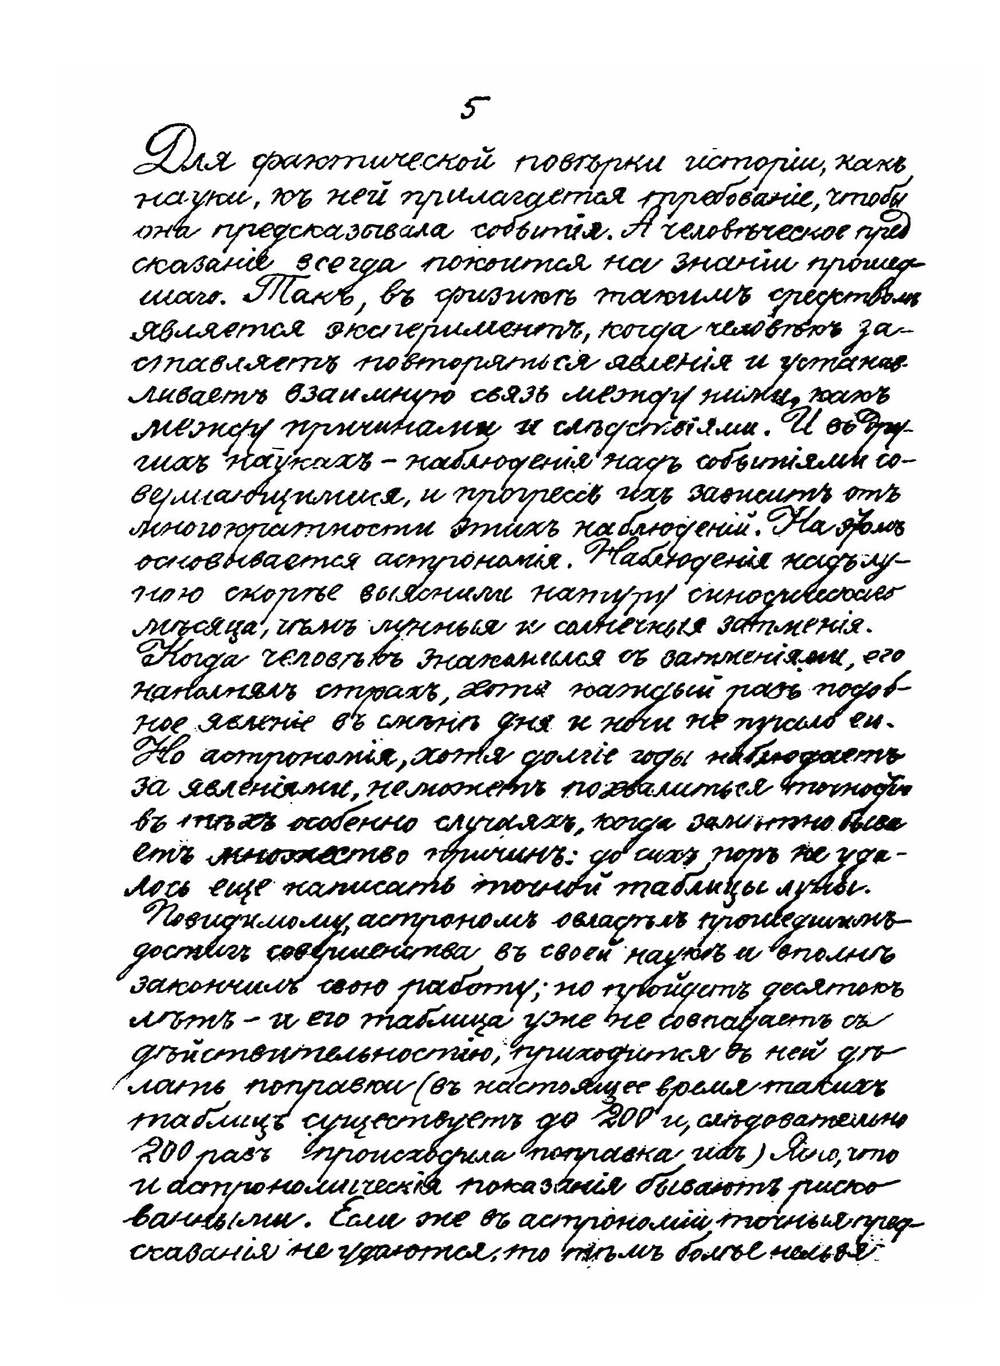 5
Для фактической повѣрки исторіи, какъ
науки, къ ней прилагается требованіе, чтобы
она предсказывала событія. А человѣческое пред
сказаніе всегда покоится на знаніи прошед-
шаго. Такъ, въ физикѣ такимъ средствомъ
является экспериментъ, когда человѣкъ за-
ставляетъ повторяться явленія и устанав-
ливаетъ взаимную связь между ними, какъ
между причинами и слѣдствіями. И въ дру-
гихъ наукахъ – наблюденія надъ событіями со-
вершающимися, и прогрессъ ихъ зависитъ отъ
многократности этихъ наблюденій. На этомъ
основывается астрономія. Наблюденія надъ лу-
ною скорѣе выяснили натуру синодическаго
мѣсяца, чѣмъ лунныя и солнечныя затменія.
Когда человѣкъ знакомился съ затменіями, его
наполнялъ страхъ, хотя каждый разъ подоб-
ное явленіе въ смѣнѣ дня и ночи не пугало ея.
Но астрономія, хотя долгіе годы наблюдаетъ
за явленіями, не можетъ похвалиться точностью
въ тѣхъ особенно случаяхъ, когда замѣтно быва
етъ множество причинъ: до сихъ поръ не уда-
лось еще написать точной таблицы луны.
Повидимому, астрономъ овладѣлъ прошедшимъ
достигъ совершенства въ своей наукѣ и вполнѣ
закончилъ свою работу; но пройдетъ десятокъ
лѣтъ – и его таблица уже не совпадаетъ съ
дѣйствительностію, приходится въ ней дѣ
лать поправки (въ настоящее время такихъ
таблицъ существуетъ до 200 и, слѣдовательно
200 разъ происходила поправка ихъ) Ясно, что
и астрономическія показанія бываютъ риско
ванными. Если же въ астрономіи точныя пред-
сказанія не удаются, то тѣмъ болѣе нельзя